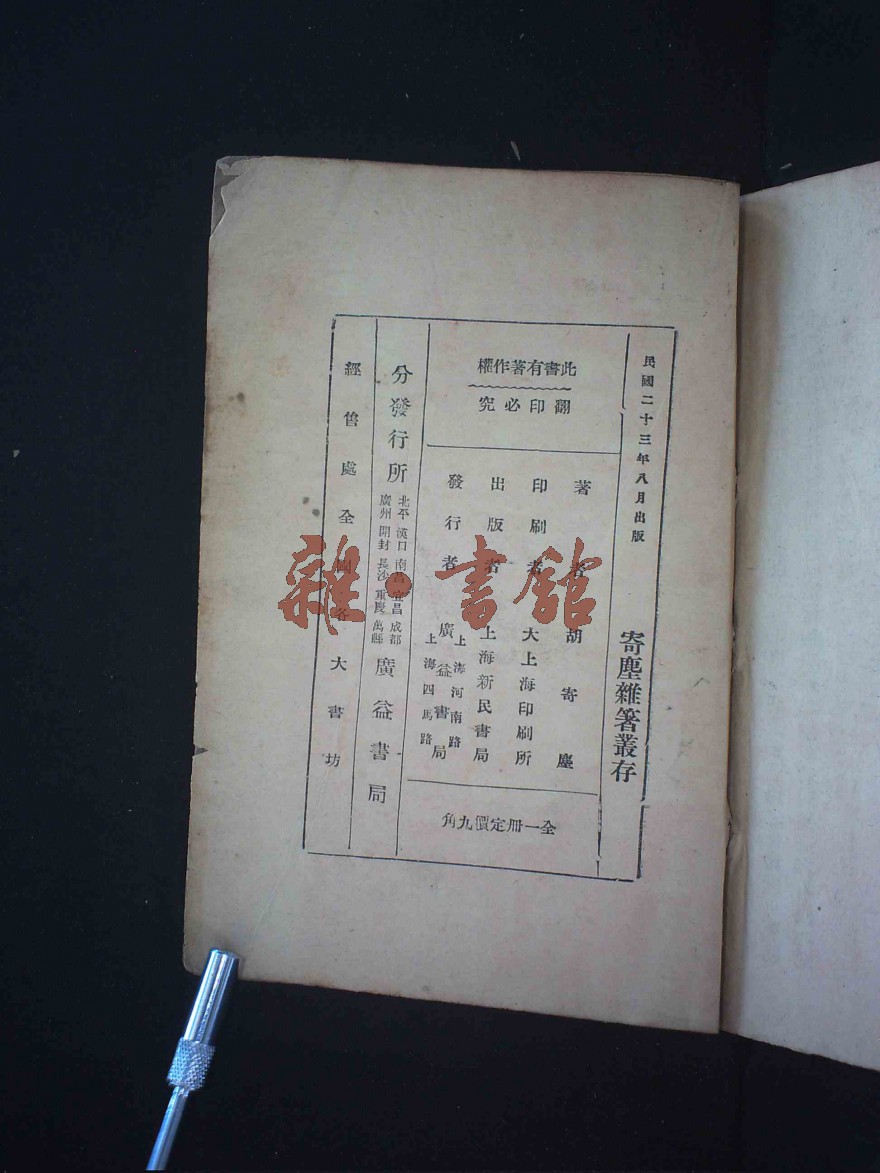 民國二十三年八月出版
寄塵雜箸叢存
此書有著作權
翻印必究
著者 胡寄塵
印刷者 大上海印刷所
出版者 上海新民書局
發行者 上海河南路 廣益書局 上海四馬路
全一冊定價九角
分發行所 北平 漢口 南昌 宜昌 成都 廣州 開封 長沙 重慶 萬縣 廣益書局
經售處全國各大書坊
雜·書館